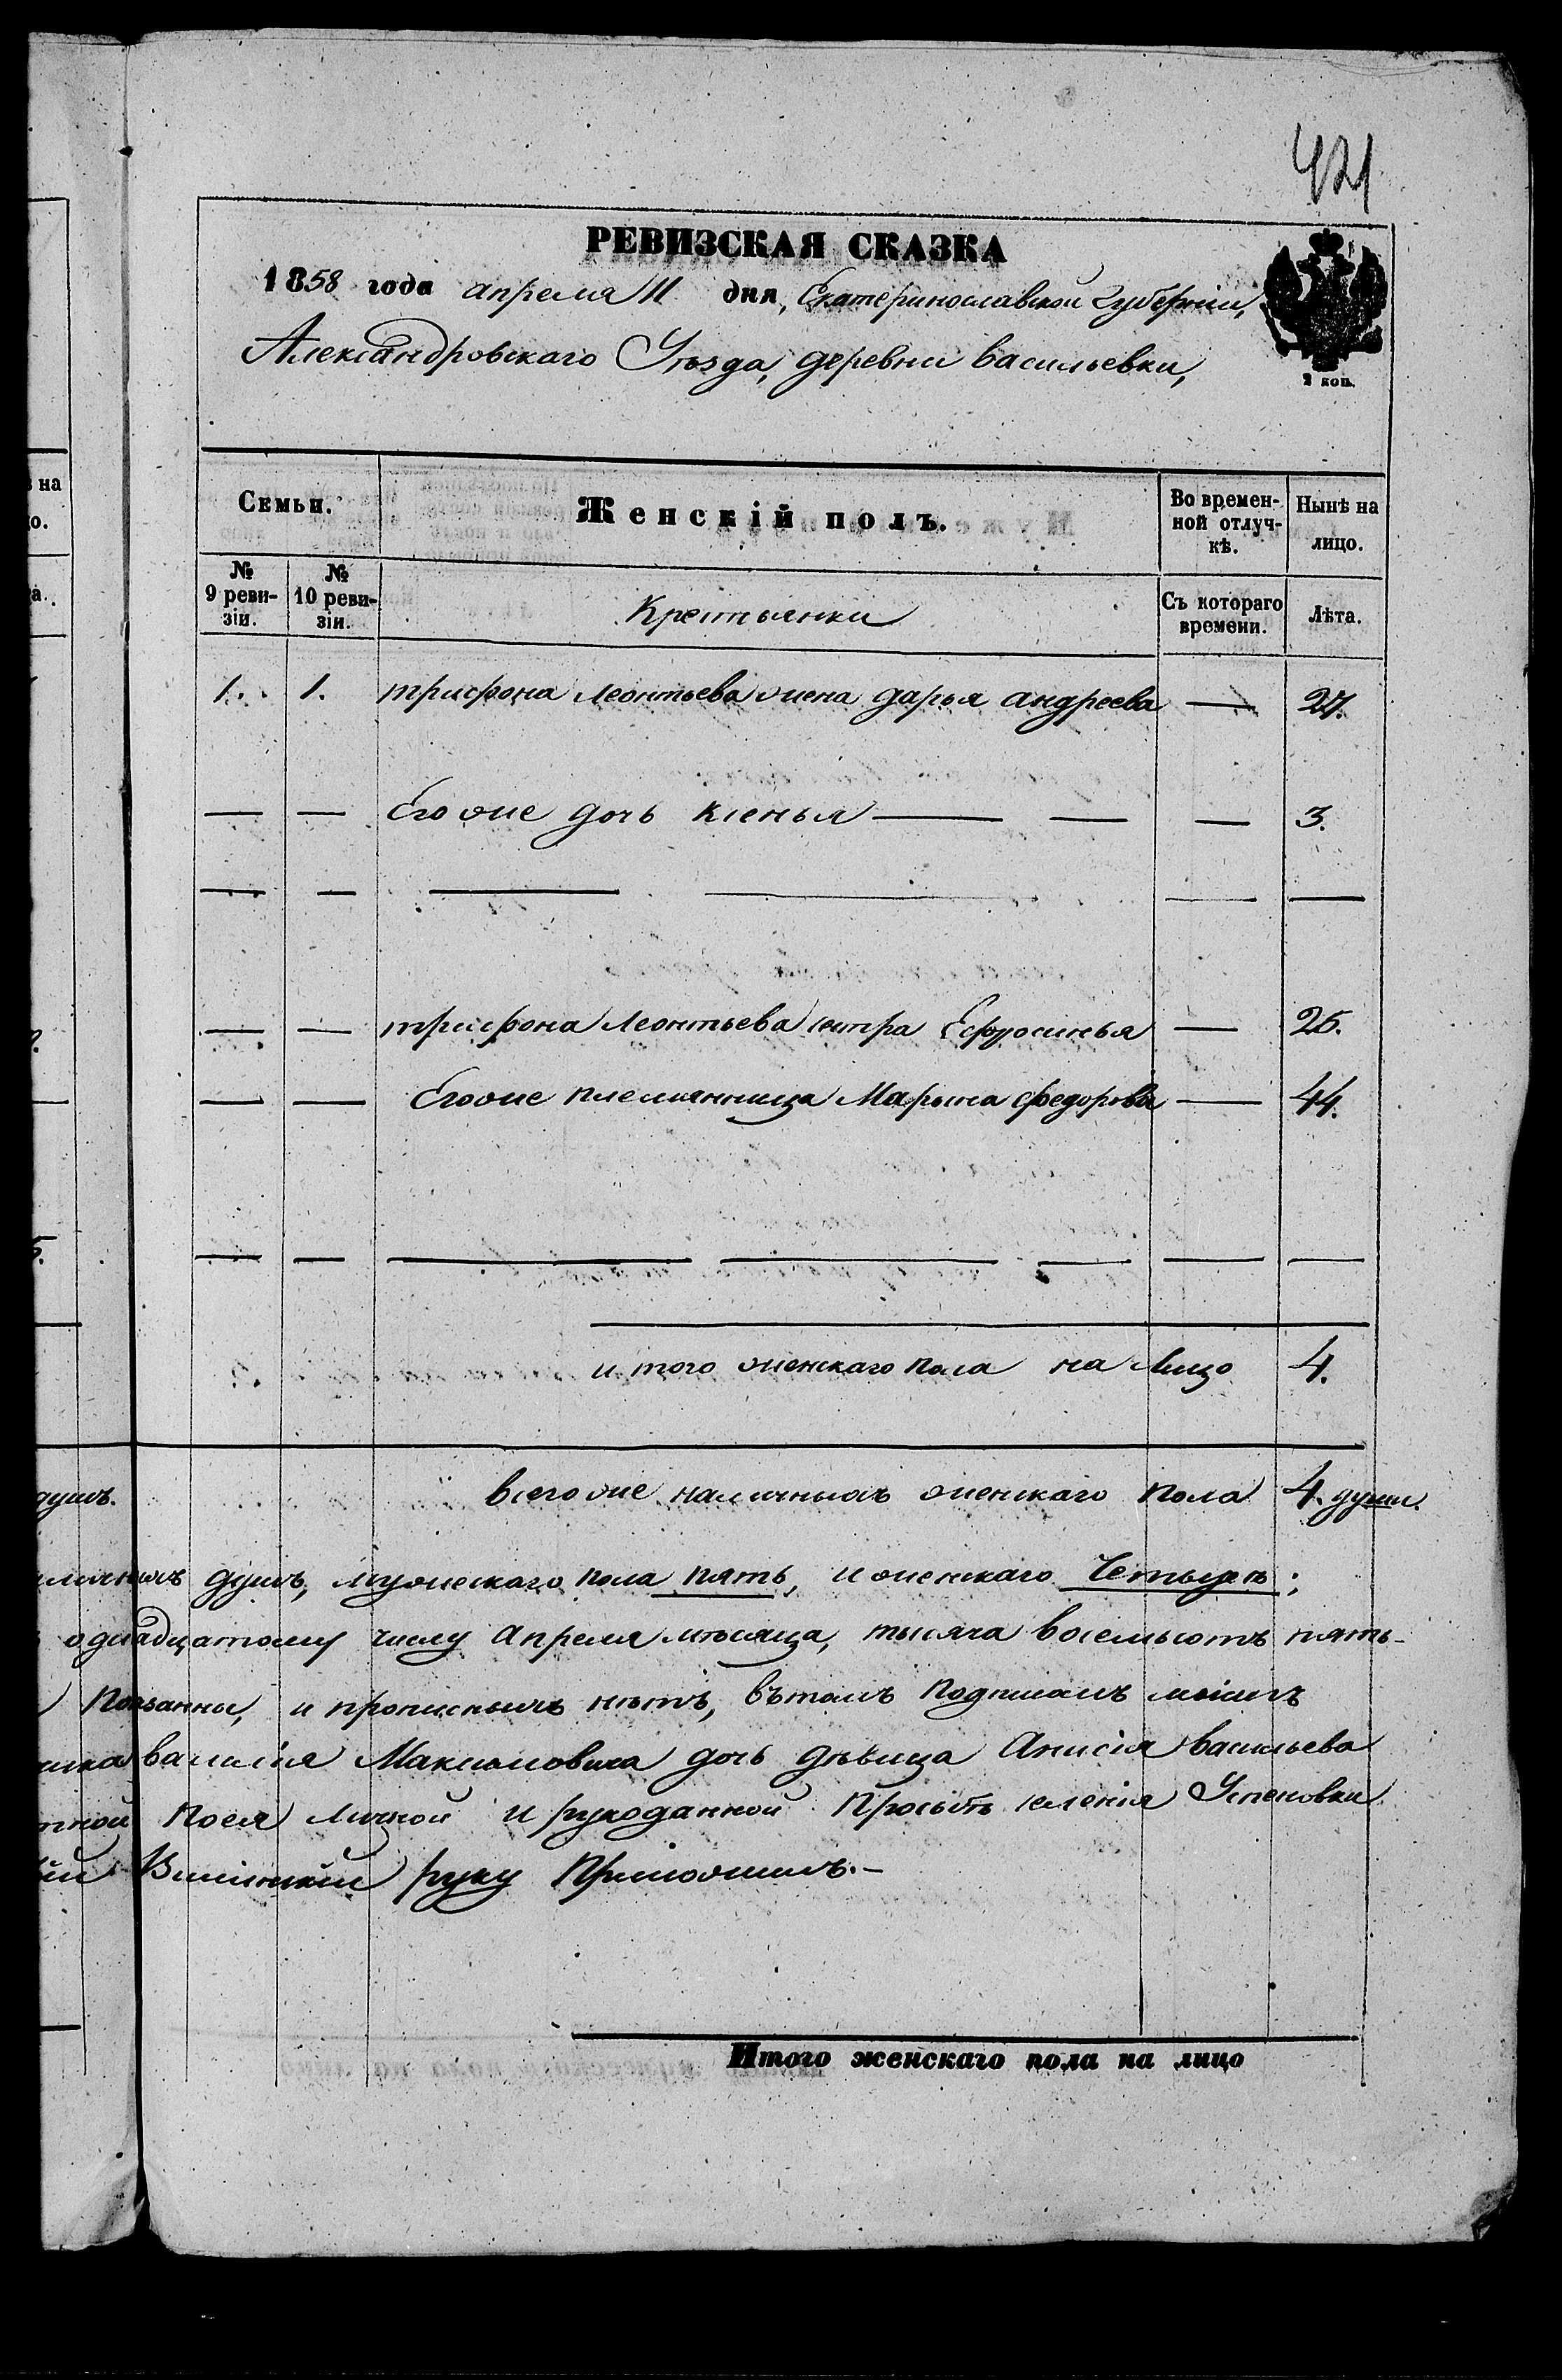 421
РЕВИЗСКАЯ СКАЗКА
1858 года апреля 11 дня, Екатеринославской Губерніи,
Александровскаго Уѣзда, деревни васильевки,
2 коп.
на
Семьи.
Женскій полъ.
Во времен-
ной отлуч-
кѣ.
Нынѣ на
лицо.
№
9 реви-
зіи.
№
10 реви-
зіи.
Крестьянки
Съ котораго
времени.
Лѣта.
1. 1. трифона Леонтьева жена дарья андреева — 27.
— — Его же дочь ксенья — — — 3.
— — трифона Леонтьева сестра Ефросинья — 25.
— — Егоже племянница Марьина федорова — 44.
и того женскаго пола на Лицо 4.
душъ. всегоже наличныхъ женскаго пола 4. души.
душъ, мужескаго пола пять, и женскаго Четыре;
одинадцатому числу апреля мѣсяца, тысяча восемьсотъ пять-
и прописныхъ нѣтъ, вътомъ
василія Максимовича дочь дѣвица Анисія васильева
поея Личной и рукоданной Прозьбѣ селенія Успеновки
руку Приложилъ.—
Итого женскаго пола на лицо